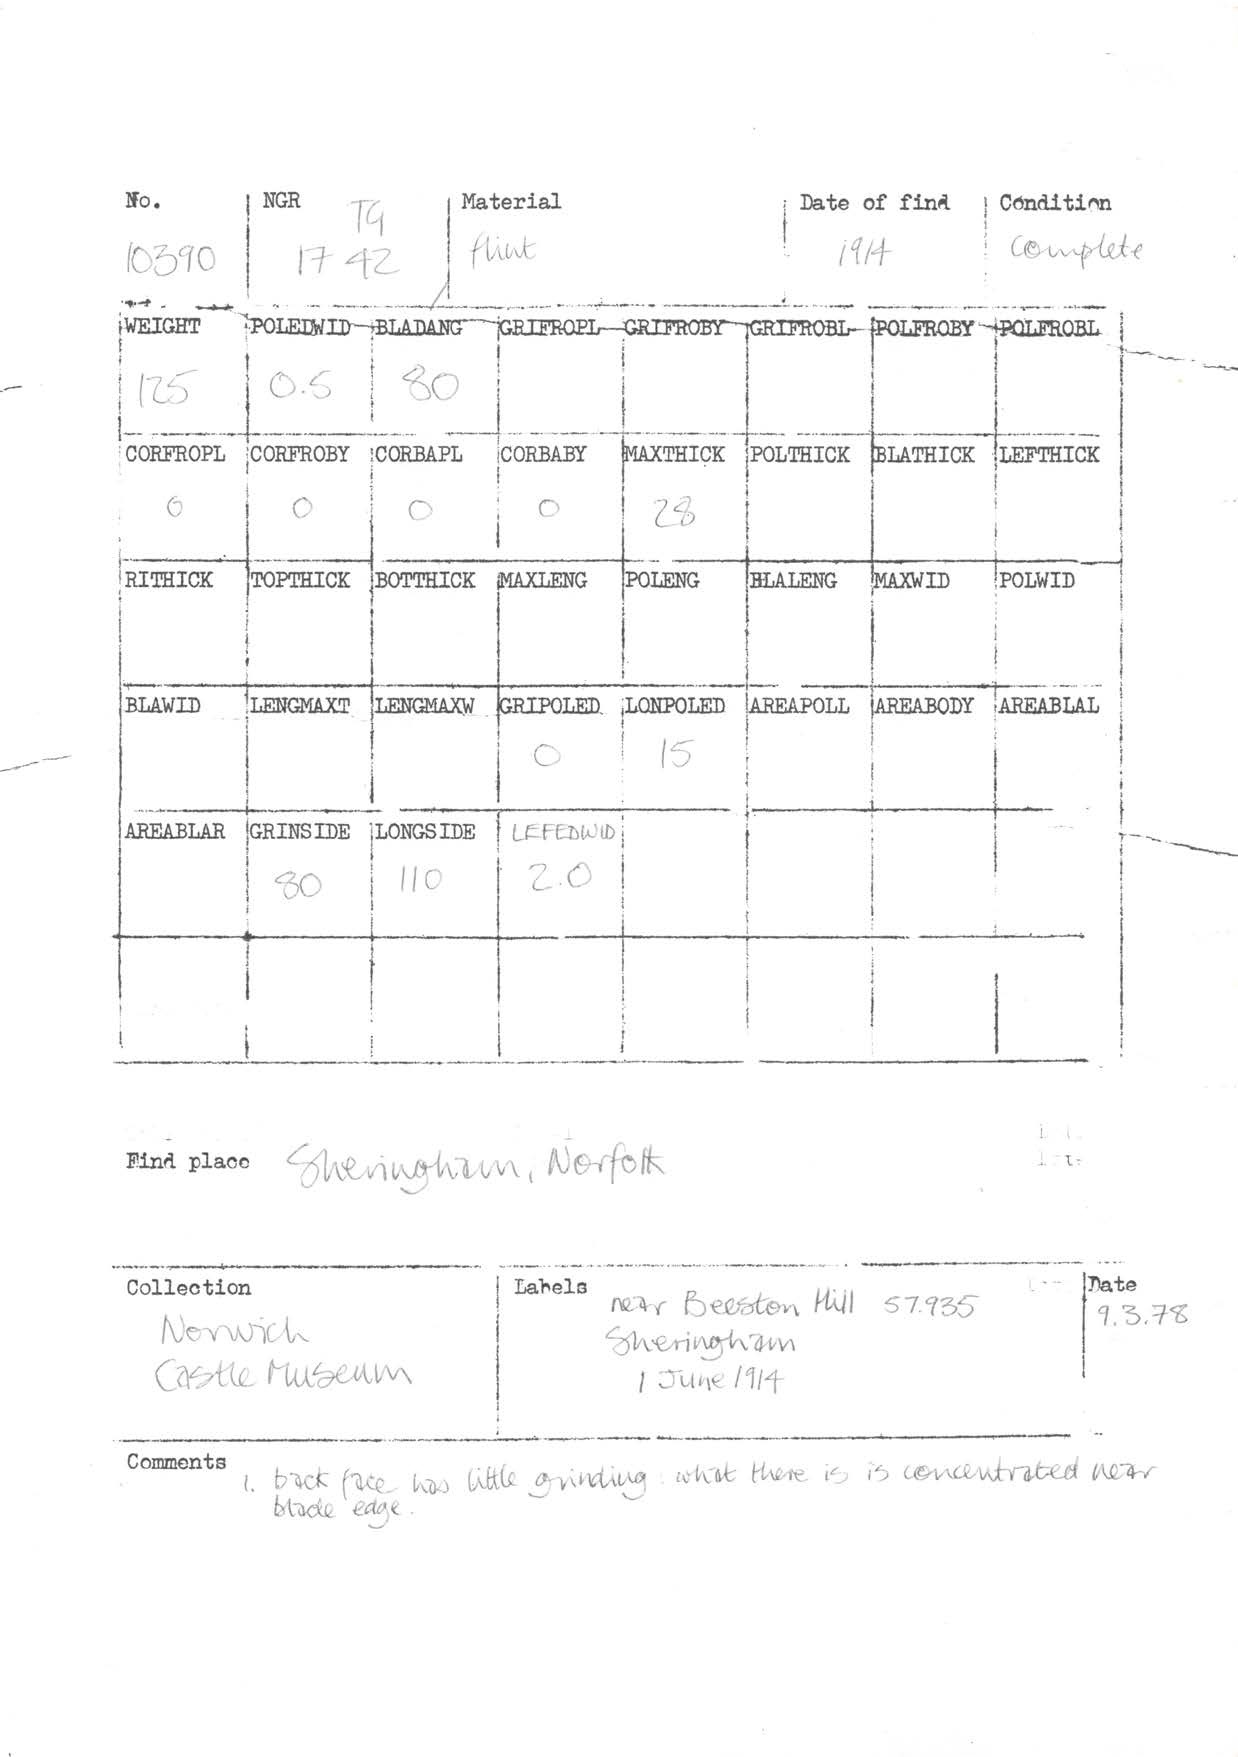 No. NGR Material Date of find Condition
TG
10390 17 42 flint 1914 Complete
WEIGHT POLEDWID BLADANG GRIFROPL GRIFROBY GRIFROBL POLFROBY POLFROBL
125 0.5 80
CORFROPL CORFROBY CORBAPL CORBABY MAXTHICK POLTHICK BLATHICK LEFTHICK
0 0 0 0 28
RITHICK TOPTHICK BOTTHICK MAXLENG POLENG BLALENG MAXWID POLWID
BLAWID LENGMAXT LENGMAXW GRIPOLED LONPOLED AREAPOLL AREABODY AREABLAL
0 15
AREABLAR GRINSIDE LONGSIDE LEFEDWID
80 110 2.0
Find place Sheringham, Norfolk
Collection Labels Date
near Beeston Hill 57.935 9.3.78
Norwich Sheringham
Castle Museum 1 June 1914
Comments
1. back face has little grinding: what there is is concentrated near
blade edge.